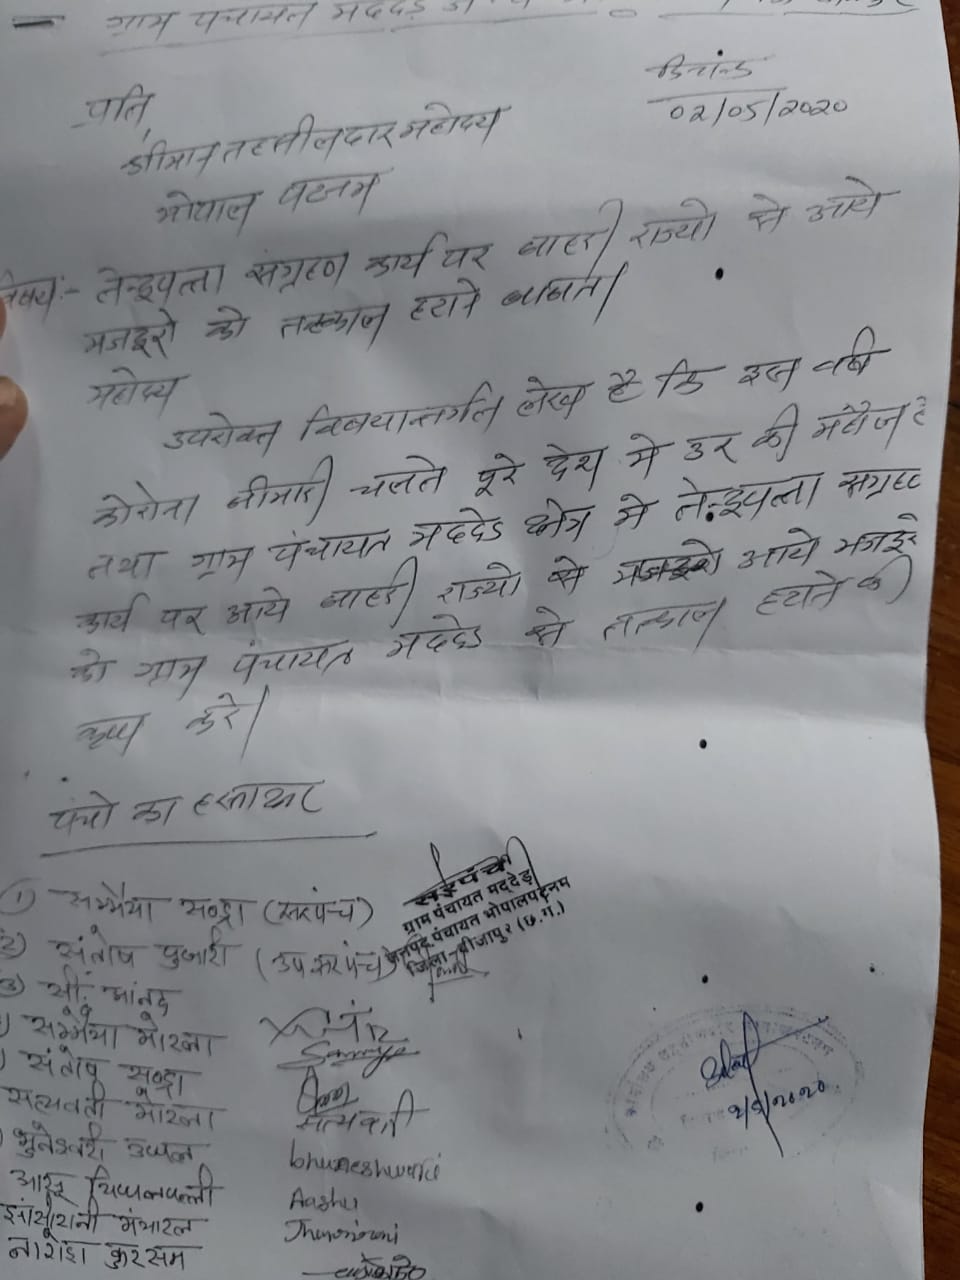 ग्राम पंचायत मददेड
दिनांक
02/05/2020
प्रति,
श्रीमान तहसीलदार महोदय
भोपाल पटनम
विषय:- तेन्दुपत्ता संग्रहण कार्य पर बाहरी राज्यो से आये
मजदुरो को तत्काल हटाने बाबत।
महोदय
उपरोक्त विषयान्तर्गत लेख है कि इस वर्ष
कोरोना बीमारी चलते पूरे देश मे डर की है
तथा ग्राम पंचायत मददेड क्षेत्र मे तेन्दुपत्ता संग्रहण
कार्य पर आये बाहरी राज्यो से आये मजदुरो
को ग्राम पंचायत मददेड से तत्काल हटाने की
कृपा करे।
पंचो का हस्ताक्षर
① सम्मैया सण्ड्रा (सरपंच)
सरपंच
ग्राम पंचायत मद्देड़
जनपद पंचायत भोपालपट्नम
जिला-बीजापुर (छ.ग.)
2) संतोष पुजारी (उप सरपंच)
3) सी. आनंद
सम्मैया मोरला
संतोष सण्ड्रा
सत्यवती मोरला सत्यवती
भुनेश्वरी उप्पल bhuneshwari
आशु चिप्पनपल्ली Aashu
झांसीरानी
नागेश कुरसम
2/5/2020